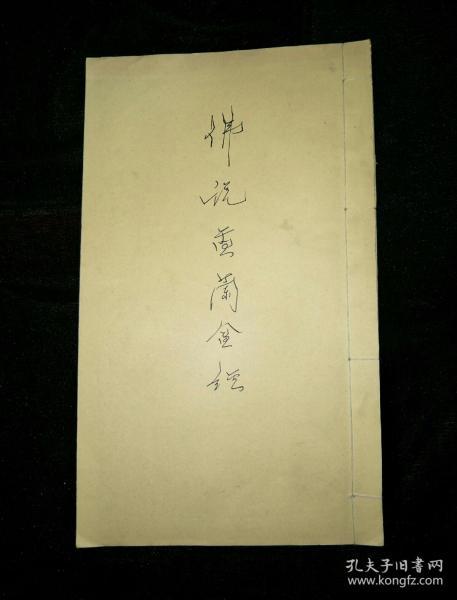 佛说盂蘭盆經
孔夫子旧书网
www.kongfz.com